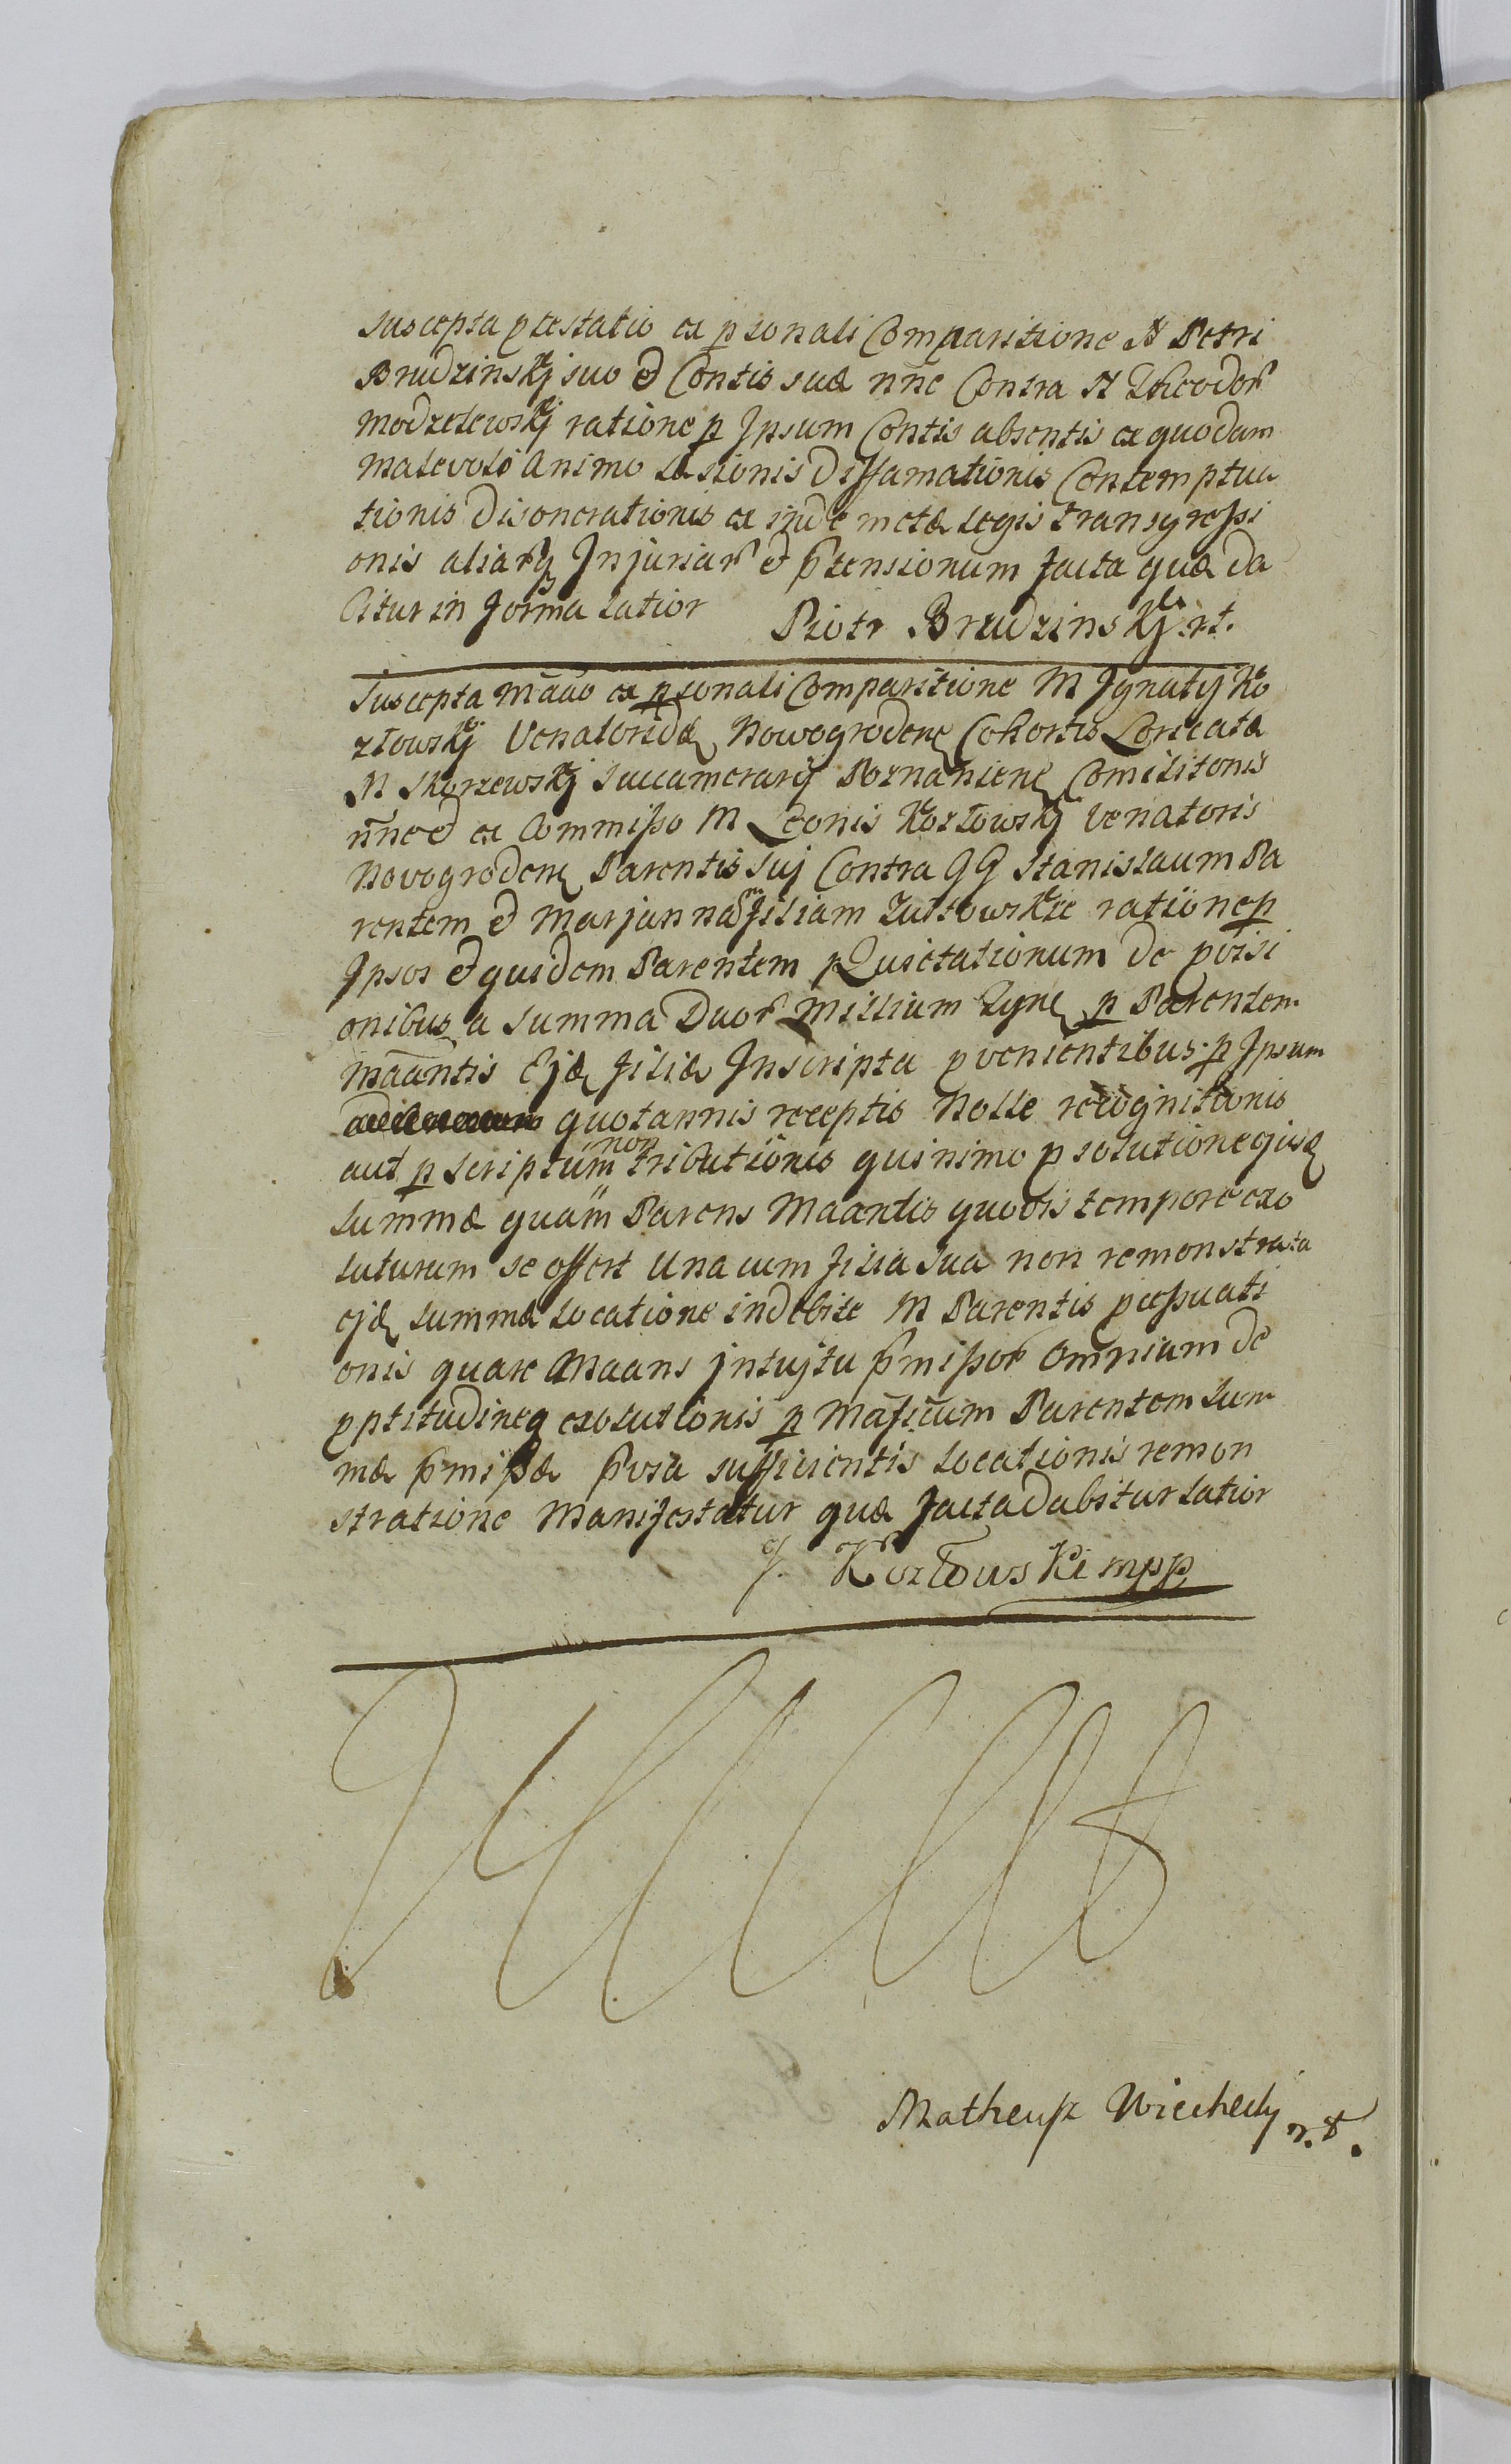 Suscepta ptestatio ex psonali Comparitione N Petri
Brudzinskj suo et Contis suæ nne Contra N Theodor
Modzelewskj ratione p Ipsum Contis absentis ex quodam
malevolo animo læsionis Diffamationis Contemptua
tionis Disonerationis ex inde metæ legis transgressi
onis aliarq Injuriar et ptensionum facta quæ da
bitur in forma latior Piotr Brudzinskj rt.
Suscepta Maão ex psonali Comparitione M Ignatij Ko
złowskj Venatoridæ Nowogrodenę Cohortis Loricatæ
M Skorzewskj Succamerarij Poznanienę Comilitonis
nne et ex Commisso M Leonis Kozłowskj Venatoris
Novogrodenę Parentis suj Contra GG Stanislaum Pa
rentem et Marjannam filiam Zutowskie ratione p
Ipsos et quidem Parentem pQuietationum de pvisi
onibus a summa Duor Millium Tynę p Parentem
Maãntis Ejdę filiæ Inscripta pvenientibus p Ipsum
quotannis receptis Nolle recognitionis
aut p scriptum non tributionis quinimo p solutione ejusdę
summæ quam Parens Maantis quovis tempore exo
luturum se offert una cum filia sua non remonstrata
ejdę summæ locatione indebite M Parentis pcessuati
onis quare Maans intujtu pmissor Omnium de
pptitudineq exolutionis p Maficum Parentem sum
mæ pmissæ pvia sufficientis locationis remon
stratione Manifestatur quæ facta dabitur latior
J. Kozłowski mpp
Matheusz Wiechecki r.t.